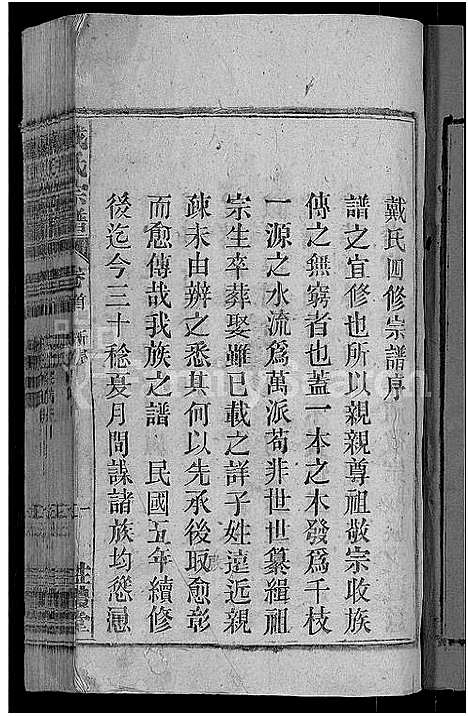 戴氏四修宗譜序
譜之宜修也所以親親尊祖敬宗收族
傳之無窮者也蓋一本之木發爲千枝
一源之水流爲萬派苟非世世纂緝祖
宗生卒葬娶雖已載之詳子姓遠近親
疎未由辨之悉其何以先承後啟愈彰
而愈傳哉我族之譜 民國五年續修
後迄今三十稔夏月間謀諸族均慫慂
戴氏宗譜
卷首
一